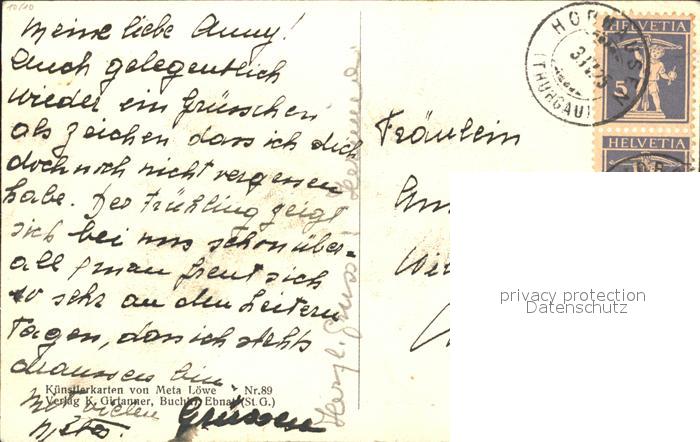 10/10
Meine liebe Anny!
Auch gelegentlich
wieder ein Grüsschen
als Zeichen dass ich dich
doch noch nicht vergessen
habe. Der Frühling zeigt
sich bei uns schon über=
all & man freut sich
so sehr an den heitern
Tagen, dass ich stehts
draussen bin
Mit vielen Grüssen
Künstlerkarten von Meta Löwe Nr. 89
Verlag K. Girtanner, Buchh. Ebnat (St. G.)
Herzl. Gruss!
Fräulein
HELVETIA
5
HELVETIA
(THURGAU)
privacy protection
Datenschutz